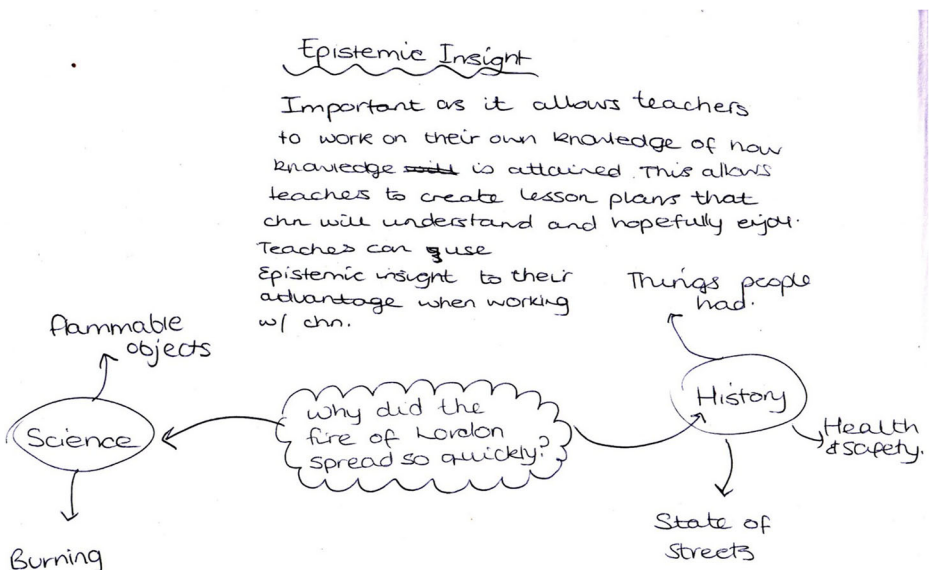 Epistemic Insight
Important as it allows teachers
to work on their own knowledge of how
knowledge is attained. This allows
teachers to create lesson plans that
chn will understand and hopefully enjoy.
Teaches can use
Epistemic insight to their
advantage when working
w/ chn.
Things people
had.
flammable
objects
Science
why did the
fire of London
spread so quickly?
History
Health
& safety.
State of
Streets
Burning